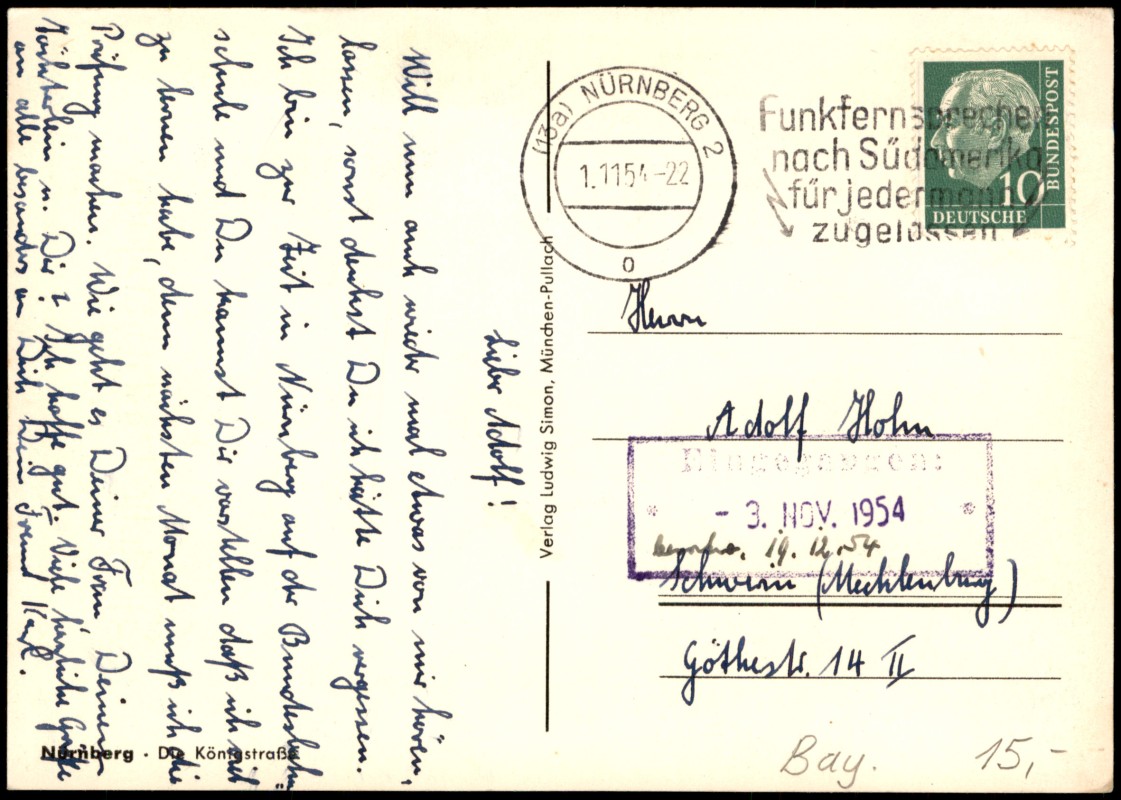 Lieber Adolf!
Will nun auch wieder mal etwas von mir hören,
lassen, sonst denkst Du ich hätte Dich vergessen.
Ich bin zur Zeit in Nürnberg auf der Bundesbahn
schule und Du kannst Dir vorstellen daß ich viel
zu lernen habe, denn nächsten Monat muß ich die
Prüfung machen. Wie geht es Deiner Frau, Deinem
Töchterlein u. Dir? Ich hoffe gut. Viele herzliche Grüße
an alle besonders an Dich Dein Freund Karl.
Nürnberg · Die Königstraße
Verlag Ludwig Simon, München-Pullach
(13a) NÜRNBERG 2
1.1154-22
o
Funkfernsprechen
nach Südamerika
für jedermann
zugelassen
BUNDESPOST
10
DEUTSCHE
Herrn
Adolf Hohn
Eingegangen:
- 3. NOV. 1954
19. 12. 54
Schwerin (Mecklenburg)
Göthestr. 14 II
Bay. 15,-